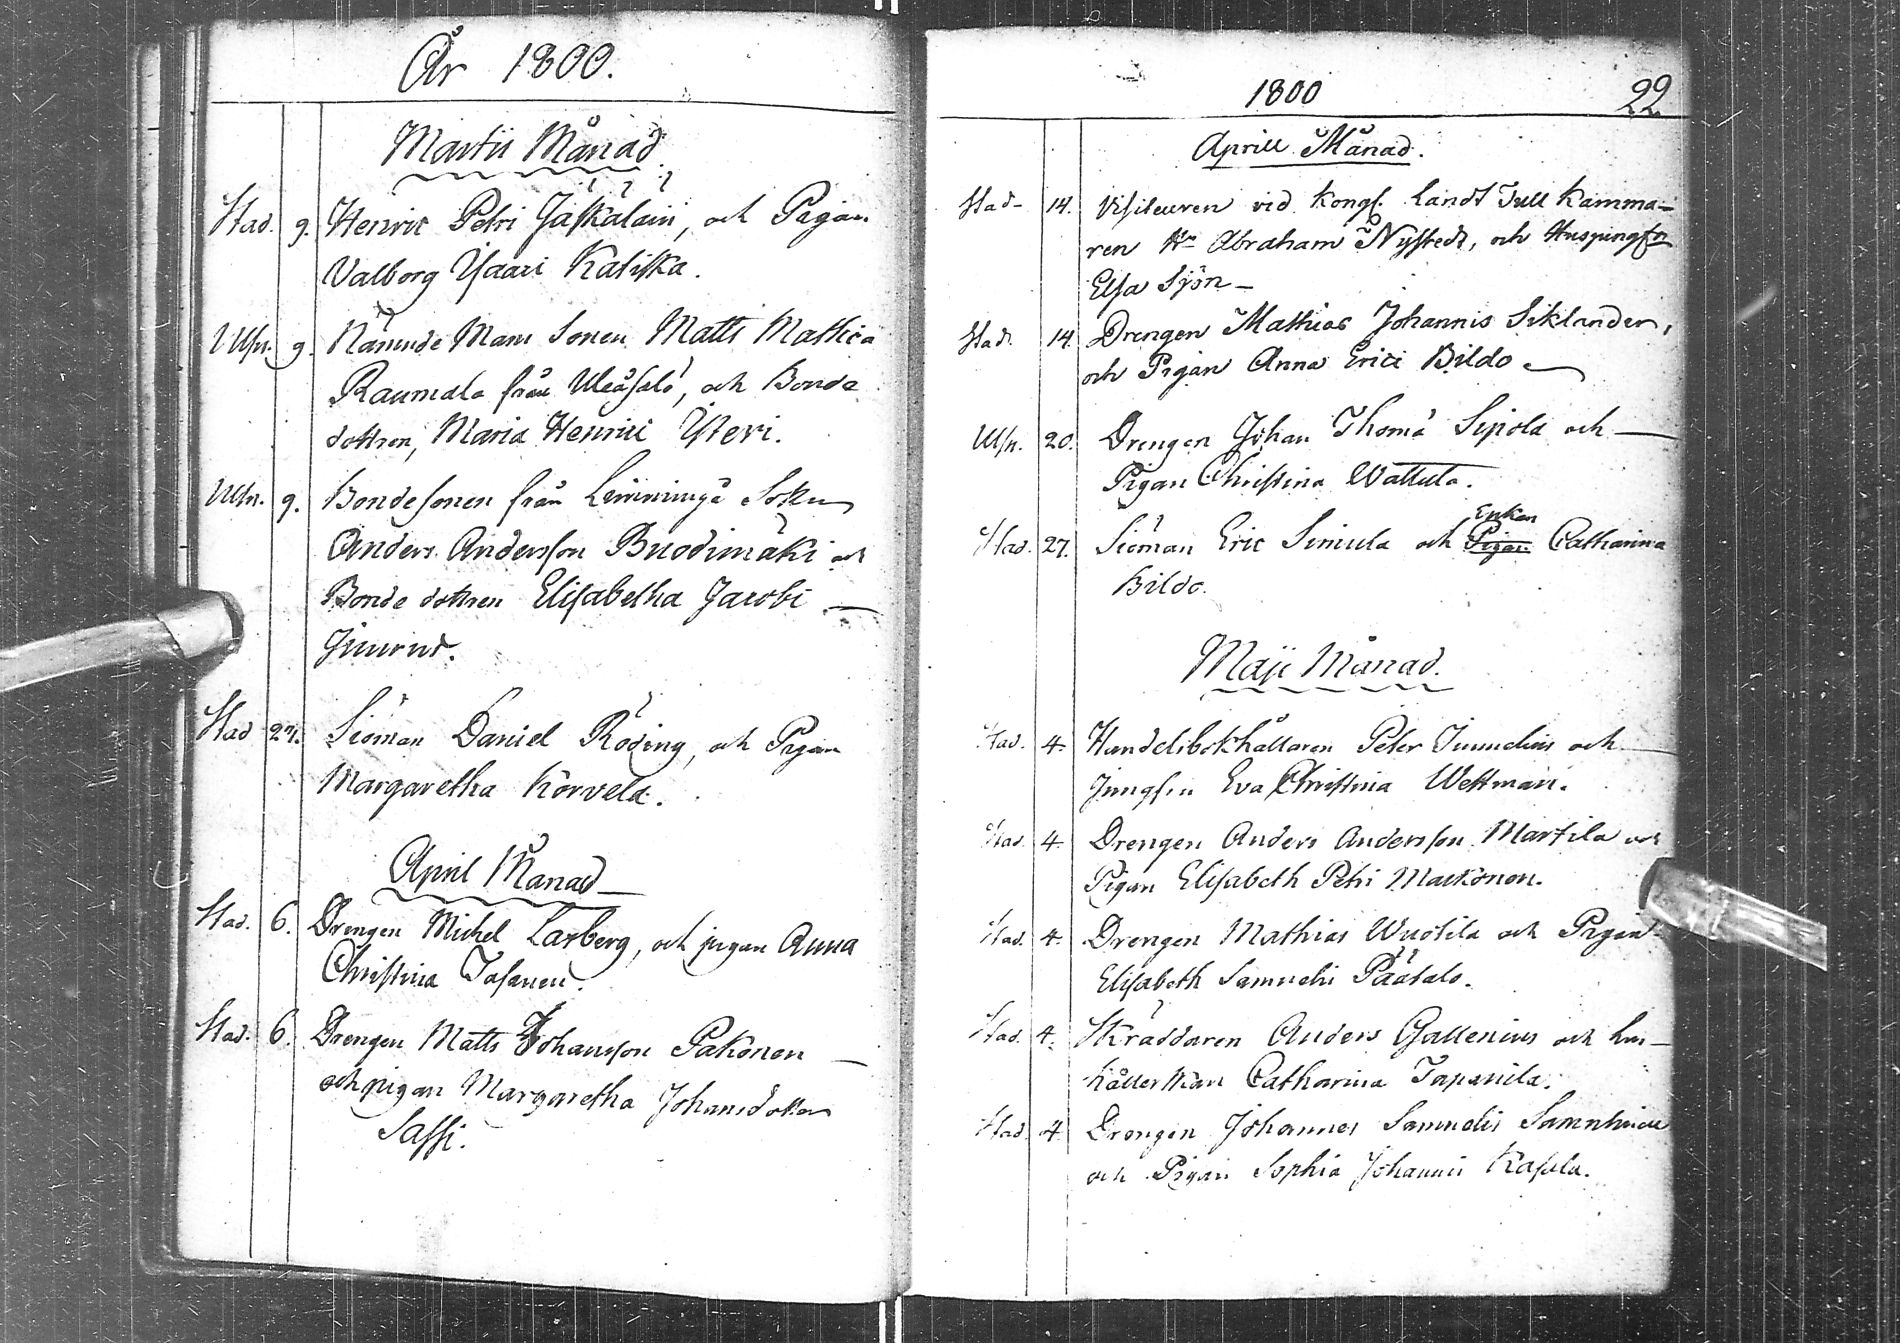 År 1800.
Martii Månad.
Stad. 9. Henric Petri Jäskäläin, och Pigan
Valborg Isaari Kaliska.
Ulsn. 9. Nämnde Mans Sonen Matts Mathiæ
Raumala från Uleåsalo, och Bonde
dottren, Maria Henrici Ysteri.
Ulsn. 9. Bondesonen från Limminge Sokn
Anders Andersson Buodimäki och
Bonde dottren Elisabetha Jacobi —
Stad 27. Siöman Daniel Röding, och Pigan
Margaretha Körvela.
April Månad —
Stad. 6. Drengen Michel Larberg, och pigan Anna
Christina Tasanen.
Stad. 6. Drengen Matts Johansson Pakonen —
och pigan Margaretha Johansdotter
Sassi.
1800 22
Aprill Månad.
Stad- 14. Visiteuren vid Kongl. Landt Tull Kamma-
ren Hr Abraham Nystedt, och
Elsa Sjön —
Stad. 14. Drengen Mathias Johannis Siklander,
och Pigan Anna Erici Bildo —
Ulsn. 20. Drengen Johan Thomæ Sipola och —
Pigan Christina Wattula.
Enkan
Stad. 27. Siöman Eric Simula och Pigan Catharina
Bildo.
Maji Månad.
Stad. 4. Handelsbokhållaren Peter och —
Jungfru Eva Christina Wettman.
Stad. 4. Drengen Anders Andersson Martila och
Pigan Elisabeth Petri Markonen.
Stad. 4. Drengen Mathias Wuotila och Pigan
Elisabeth Samuelis Päätalo.
Stad. 4. Skräddaren Anders Gallenius och hus-
hållerskan Catharina Tapanila.
Stad. 4. Drengen Johannes Samuelis
och Pigan Sophia Johannis Kasala.